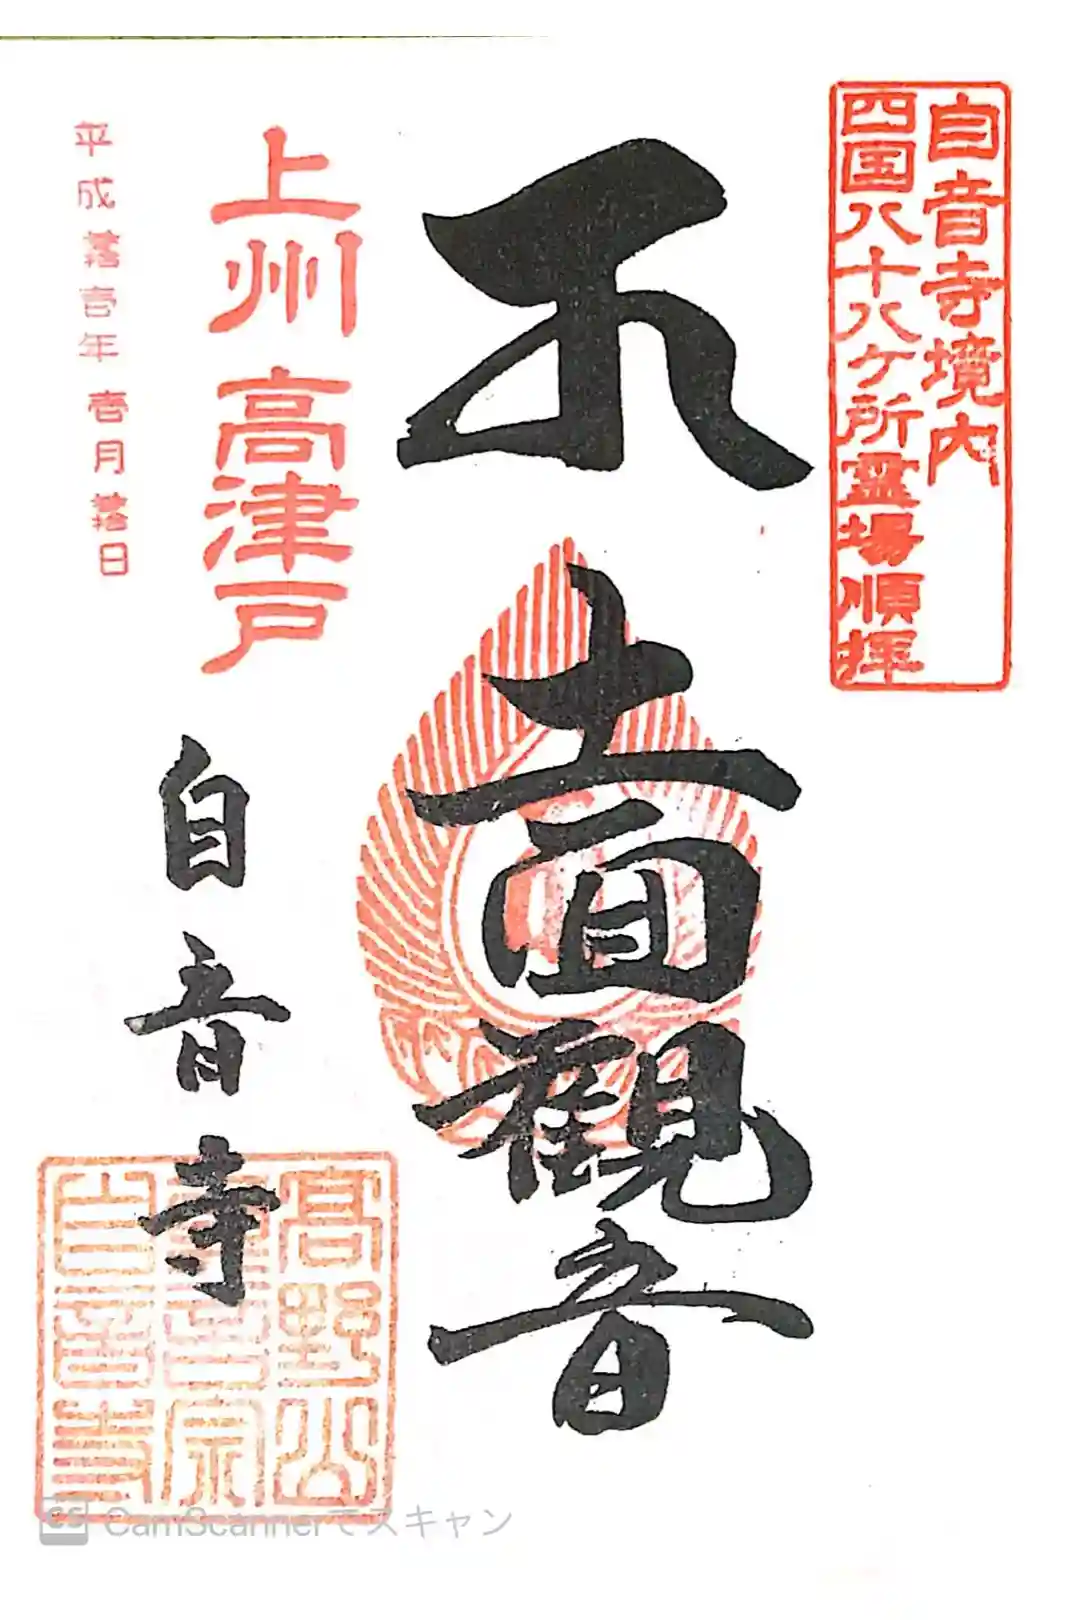 自音寺境内
四国八十八ケ所霊場順拝
十一面観音
上州 高津戸
自音寺
高野山
真言宗
自音寺
CamScannerでスキャン